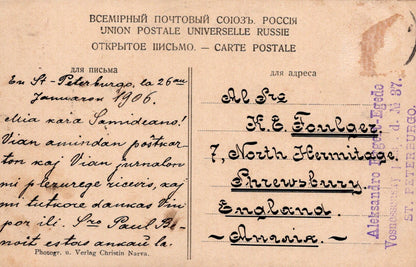 ВСЕМІРНЫЙ ПОЧТОВЫЙ СОЮЗЪ. РОССІЯ
UNION POSTALE UNIVERSELLE RUSSIE
ОТКРЫТОЕ ПИСЬМО. — CARTE POSTALE
для письма
En St-Peterburgo, la 26an
Januaron 1906.
Mia kara Samideano!
Vian amindan poŝtkar-
ton kaj Vian jurnalon
mi plezurege ricevis, kaj
mi tutkore dankas Vin
por ili. Sro Paul Be-
noit estas ankaŭ la
Photogr. u. Verlag Christin Narva.
для адреса
Al Sro
K. E. Foulger
7, North Hermitage,
Shrewsbury
England.
- Англія. -
Aleksandro
d. № 37.
ST. PETERBURGO.